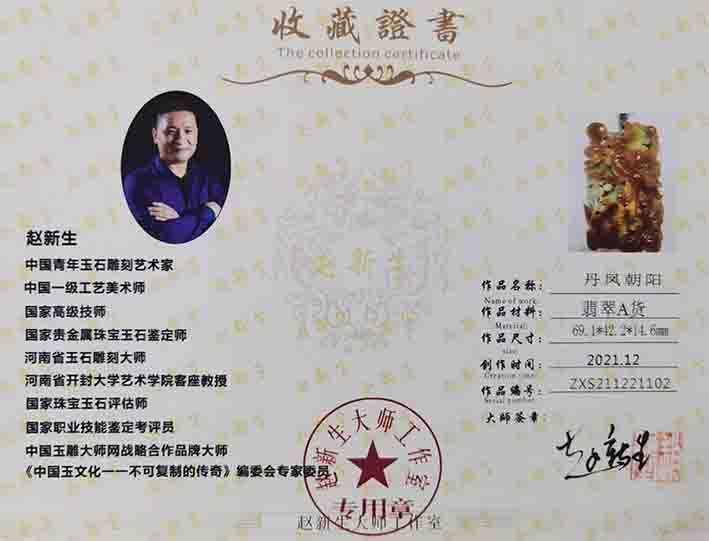 收藏證書
The collection certificate
赵新生
中国青年玉石雕刻艺术家
中国一级工艺美术师
国家高级技师
国家贵金属珠宝玉石鉴定师
河南省玉石雕刻大师
河南省开封大学艺术学院客座教授
国家珠宝玉石评估师
国家职业技能鉴定考评员
中国玉雕大师网战略合作品牌大师
《中国玉文化——不可复制的传奇》编委会专家委员
作品名称: 丹凤朝阳
Name of work:
作品材料: 翡翠A货
Material:
作品尺寸: 69.1*42.2*14.6mm
size:
创作时间: 2021.12
Creation time:
作品编号: ZXS211221102
Serial number:
大师签章:
赵新生
赵新生大师工作室
专用章
赵新生大师工作室